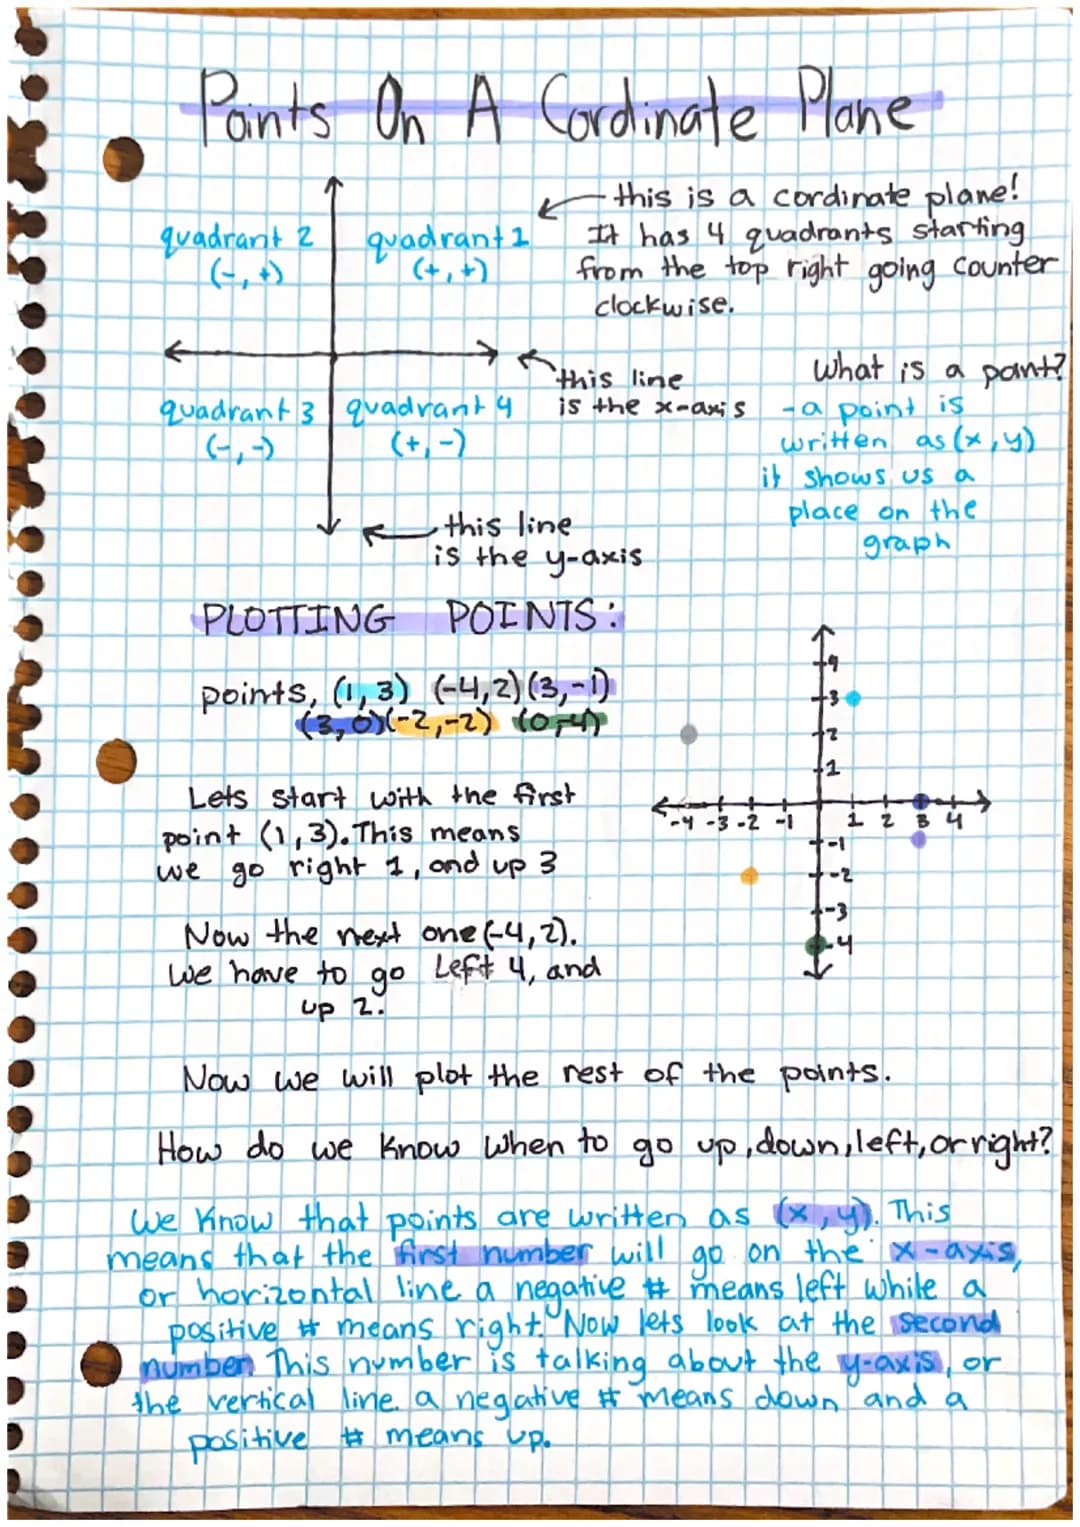 Points On A Cordinate Plane
this is a cordinate plane!
It has 4 quadrants starting
from the top right going counter
clockwise.
quadrant 2
(-, +)
quadrant 1
(+, +)
this line
is the x-axis
quadrant 3
(-, -)
quadrant 4
(+, -)
this line
is the y-axis
What is a point?
- a point is
written as (x, y)
it shows us a
place on the
graph
PLOTTING POINTS:
points, (1, 3) (-4,2) (3,-1)
(3, 0) (-2,-2) (0,-4)
Lets start with the first
point (1,3). This means
we go right 1, and up 3
Now the next one (-4,2).
We have to go Left 4, and
up 2.
4
3
2
1
-4 -3 -2 -1 1 2 3 4
-1
-2
-3
-4
Now we will plot the rest of the points.
How do we know when to go up, down, left, or right?
We know that points are written as (x, y). This
means that the first number will go on the x-axis,
or horizontal line a negative # means left while a
positive # means right. Now lets look at the second
number. This number is talking about the y-axis, or
the vertical line. a negative # means down and a
positive # means up.